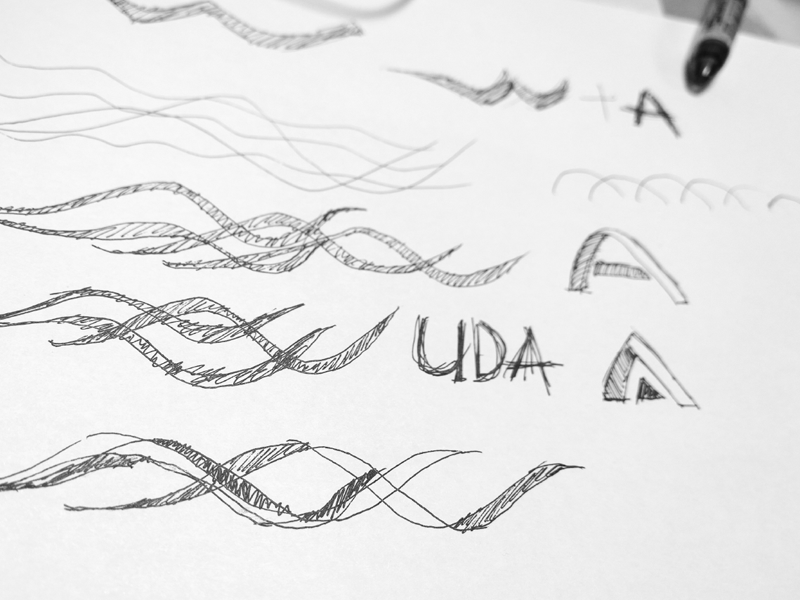 + A
A
UDA
A